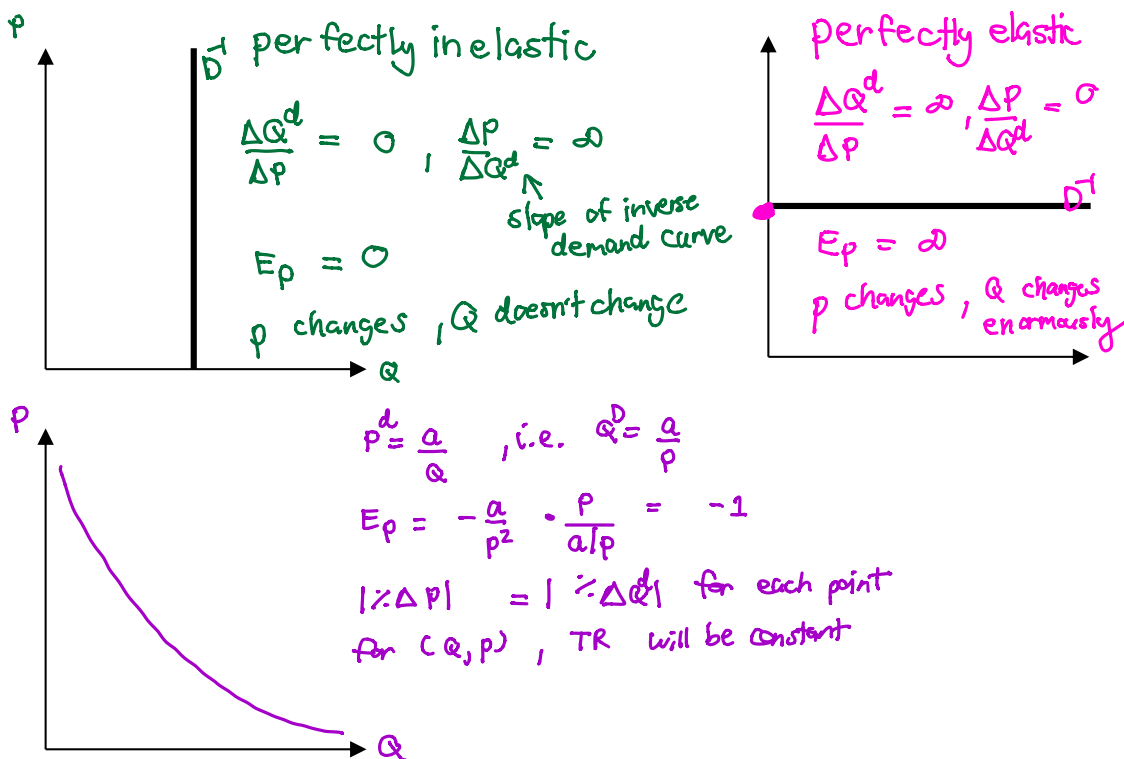 P
D⁻¹ perfectly inelastic
ΔQᵈ/ΔP = 0 , ΔP/ΔQᵈ = ∞
slope of inverse
demand curve
Eₚ = 0
p changes , Q doesn't change
Q
perfectly elastic
ΔQᵈ/ΔP = ∞ , ΔP/ΔQᵈ = 0
D⁻¹
Eₚ = ∞
p changes , Q changes
enormously
P
Pᵈ = a/Q , i.e. Qᴰ = a/P
Eₚ = -a/p² · P/(a/p) = -1
|%ΔP| = |%ΔQᵈ| for each point
for (Q,P) , TR will be constant
Q